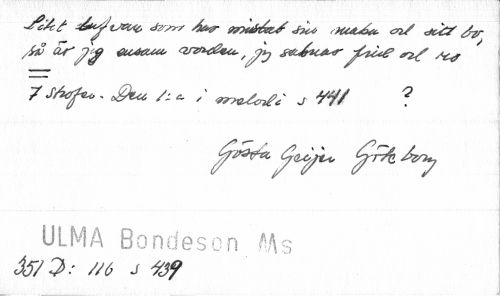 Likt tufvan som har mistat sin maka och sitt bo,
så är jg ensam vorden, jg saknar frid och ro
7 strofer. Den 1:a i melodi s 441 ?
Gösta Geijer Göteborg
ULMA Bondeson Ms
351 D: 116 s 439